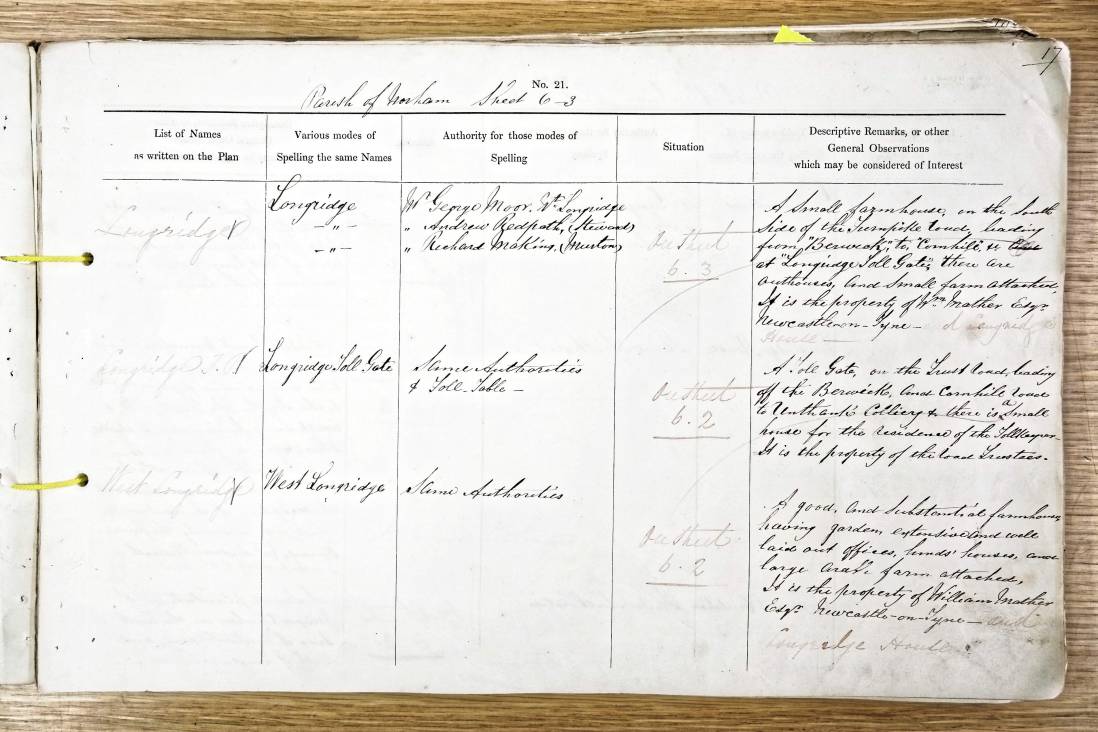 17
No. 21.
Parish of Norham Sheet 6-3
List of Names
as written on the Plan
Various modes of
Spelling the same Names
Authority for those modes of
Spelling
Situation
Descriptive Remarks, or other
General Observations
which may be considered of Interest
Longridge
Longridge
— " —
— " —
Mr George Moor. Wt. Longridge
" Andrew Redpath, (Steward)
" Richard Making, (Murton)
On Sheet
6.3
A Small farmhouse, on the South
Side of the Turnpike road, leading
from, "Berwick", to, "Cornhill", &
at "Longridge Toll Gate", there are
outhouses, and Small farm attached,
It is the property of Wm. Mather Esqr.
Newcastle-on-Tyne —
House —
Longridge T.
Longridge Toll Gate
Same Authorities
& Toll Table —
On Sheet
6.2
A Toll Gate, on the Trust road, leading
off the Berwick, and Cornhill road
to Unthank Colliery & there is a Small
house for the residence of the Tollkeeper
It is the property of the road Trustees.
West Longridge
West Longridge
Same Authorities
On Sheet
6.2
A good, and Substantial farmhouse,
having garden, extensive and well
laid out offices, hinds' houses, and
large arable farm attached,
It is the property of William Mather
Esqr. Newcastle-on-Tyne — and
Longridge House